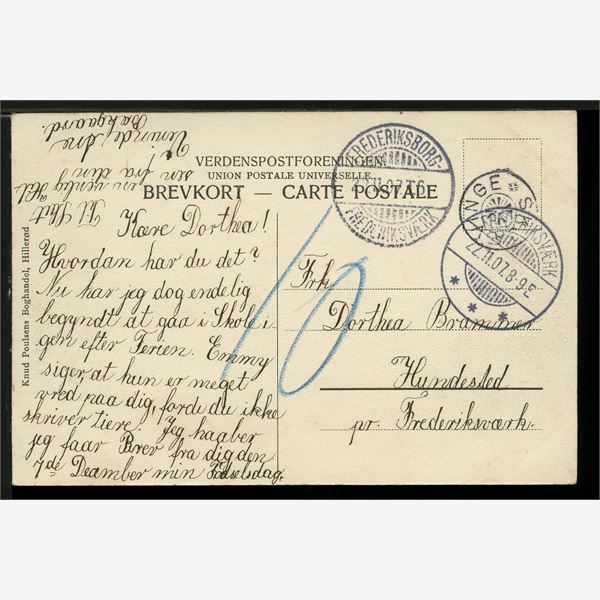 VERDENSPOSTFORENINGEN
UNION POSTALE UNIVERSELLE
BREVKORT — CARTE POSTALE
Kære Dorthea!
Hvordan har du det?
Nu har jeg dog endelig
begyndt at gaa i Skole i-
gen efter Ferien. Emmy
siger, at hun er meget
vred paa dig, fordu ikke
skriver tiere. Jeg haaber
jeg faar Brev fra dig den
7de December min Fødselsdag.
en venlig Hil
sen fra din
Veninde
Bakgaard.
Frk.
Dorthea Brammer
Hundested
pr. Frederiksværk.
10
FREDERIKSBORG-
FREDERIKSVÆRK
FREDERIKSVÆRK
22.11.07.8-9E
Knud Poulsens Boghandel, Hillerød